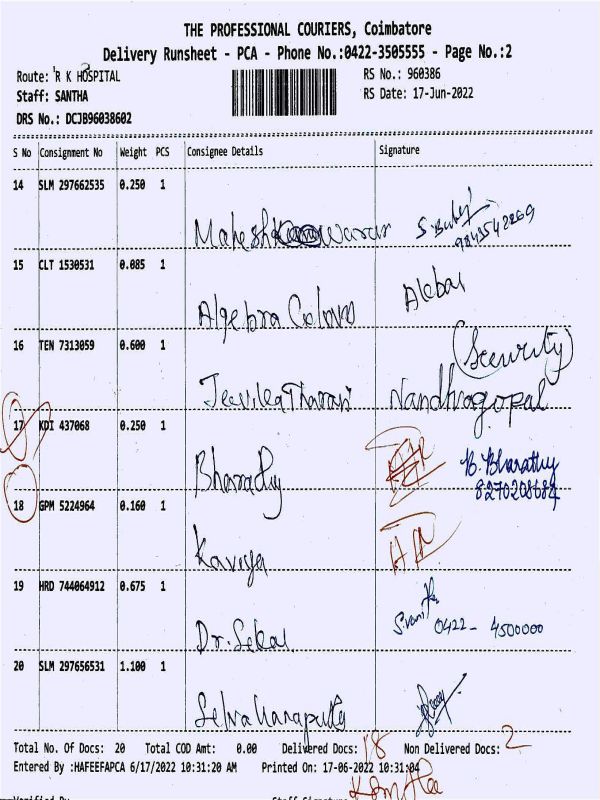 THE PROFESSIONAL COURIERS, Coimbatore
Delivery Runsheet - PCA - Phone No.:0422-3505555 - Page No.:2
Route: R K HOSPITAL RS No.: 960386
Staff: SANTHA RS Date: 17-Jun-2022
DRS No.: DCJB96038602
S No Consignment No Weight PCS Consignee Details Signature
14 SLM 297662535 0.250 1
Mahesh S. Babu
9843542269
15 CLT 1530531 0.085 1
Algebra Colours
16 TEN 7313059 0.600 1 (Security)
Nandhagopal
17 KDI 437068 0.250 1
Bharathy B. Bharathy
8270208684
18 GPM 5224964 0.160 1
Kaviya
19 HRD 744064912 0.675 1
Dr. Sekar 0422-4500000
20 SLM 297656531 1.100 1
Total No. Of Docs: 20 Total COD Amt: 0.00 Delivered Docs: 18 Non Delivered Docs: 2
Entered By :HAFEEFAPCA 6/17/2022 10:31:20 AM Printed On: 17-06-2022 10:31:04